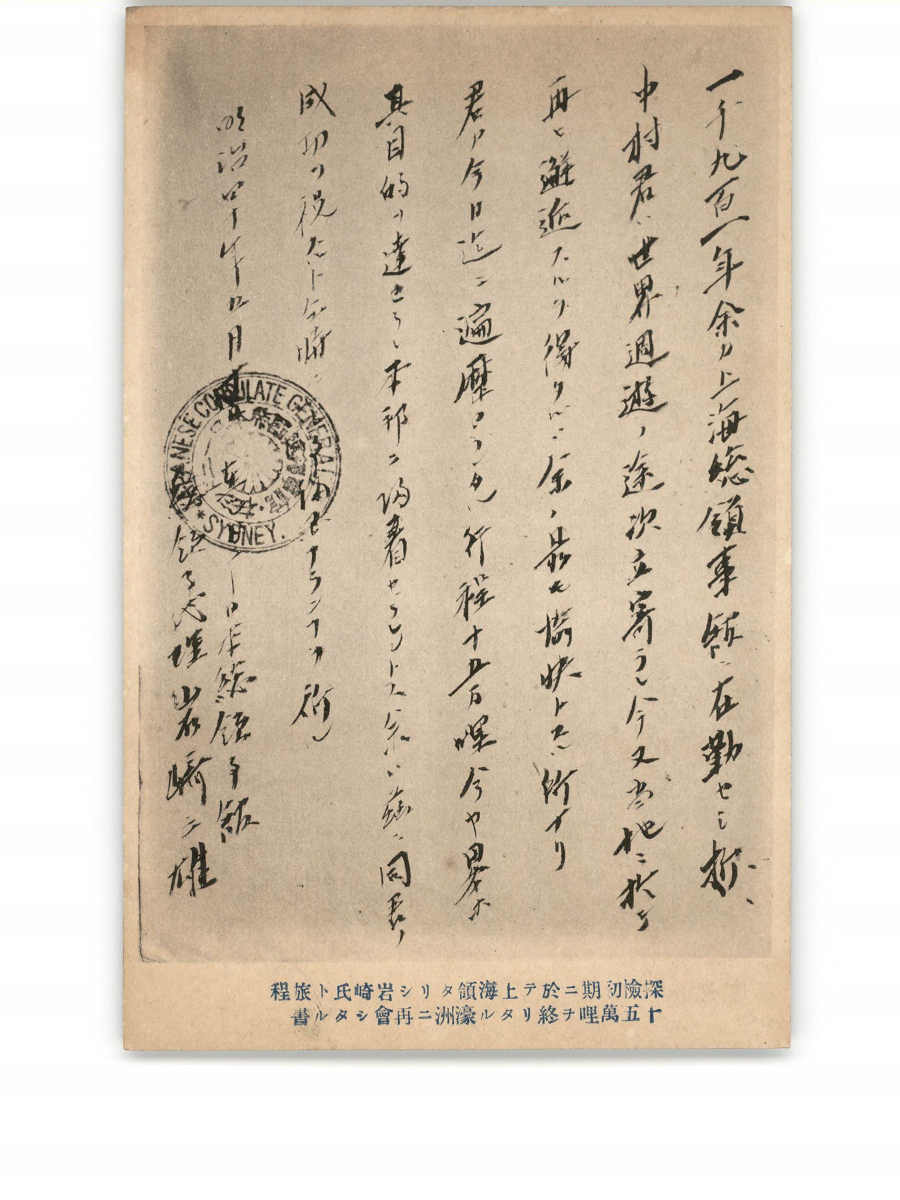 一千九百一年余カ上海総領事館ニ在勤セシ折、
中村君ハ世界週遊ノ途次立寄ラレ今又当地ニ於テ
再ヒ邂逅スルヲ得タルハ余ノ最モ愉快トスル所ナリ
君カ今日迄ニ遍歴セラレタル行程十五万哩今ヤ略ホ
其目的ヲ達セラレ本邦ニ帰着セラレントス余ハ茲ニ同君ノ
成功ヲ祝スルト同時ニ ナランコトヲ祈ル
明治四十年 月
日本総領事館
領事代理岩崎三雄
JAPANESE CONSULATE GENERAL
* SYDNEY. *
探檢初期ニ於テ上海領タリシ岩崎氏ト旅程
十五萬哩ヲ終リタル濠洲ニ再會シタル書